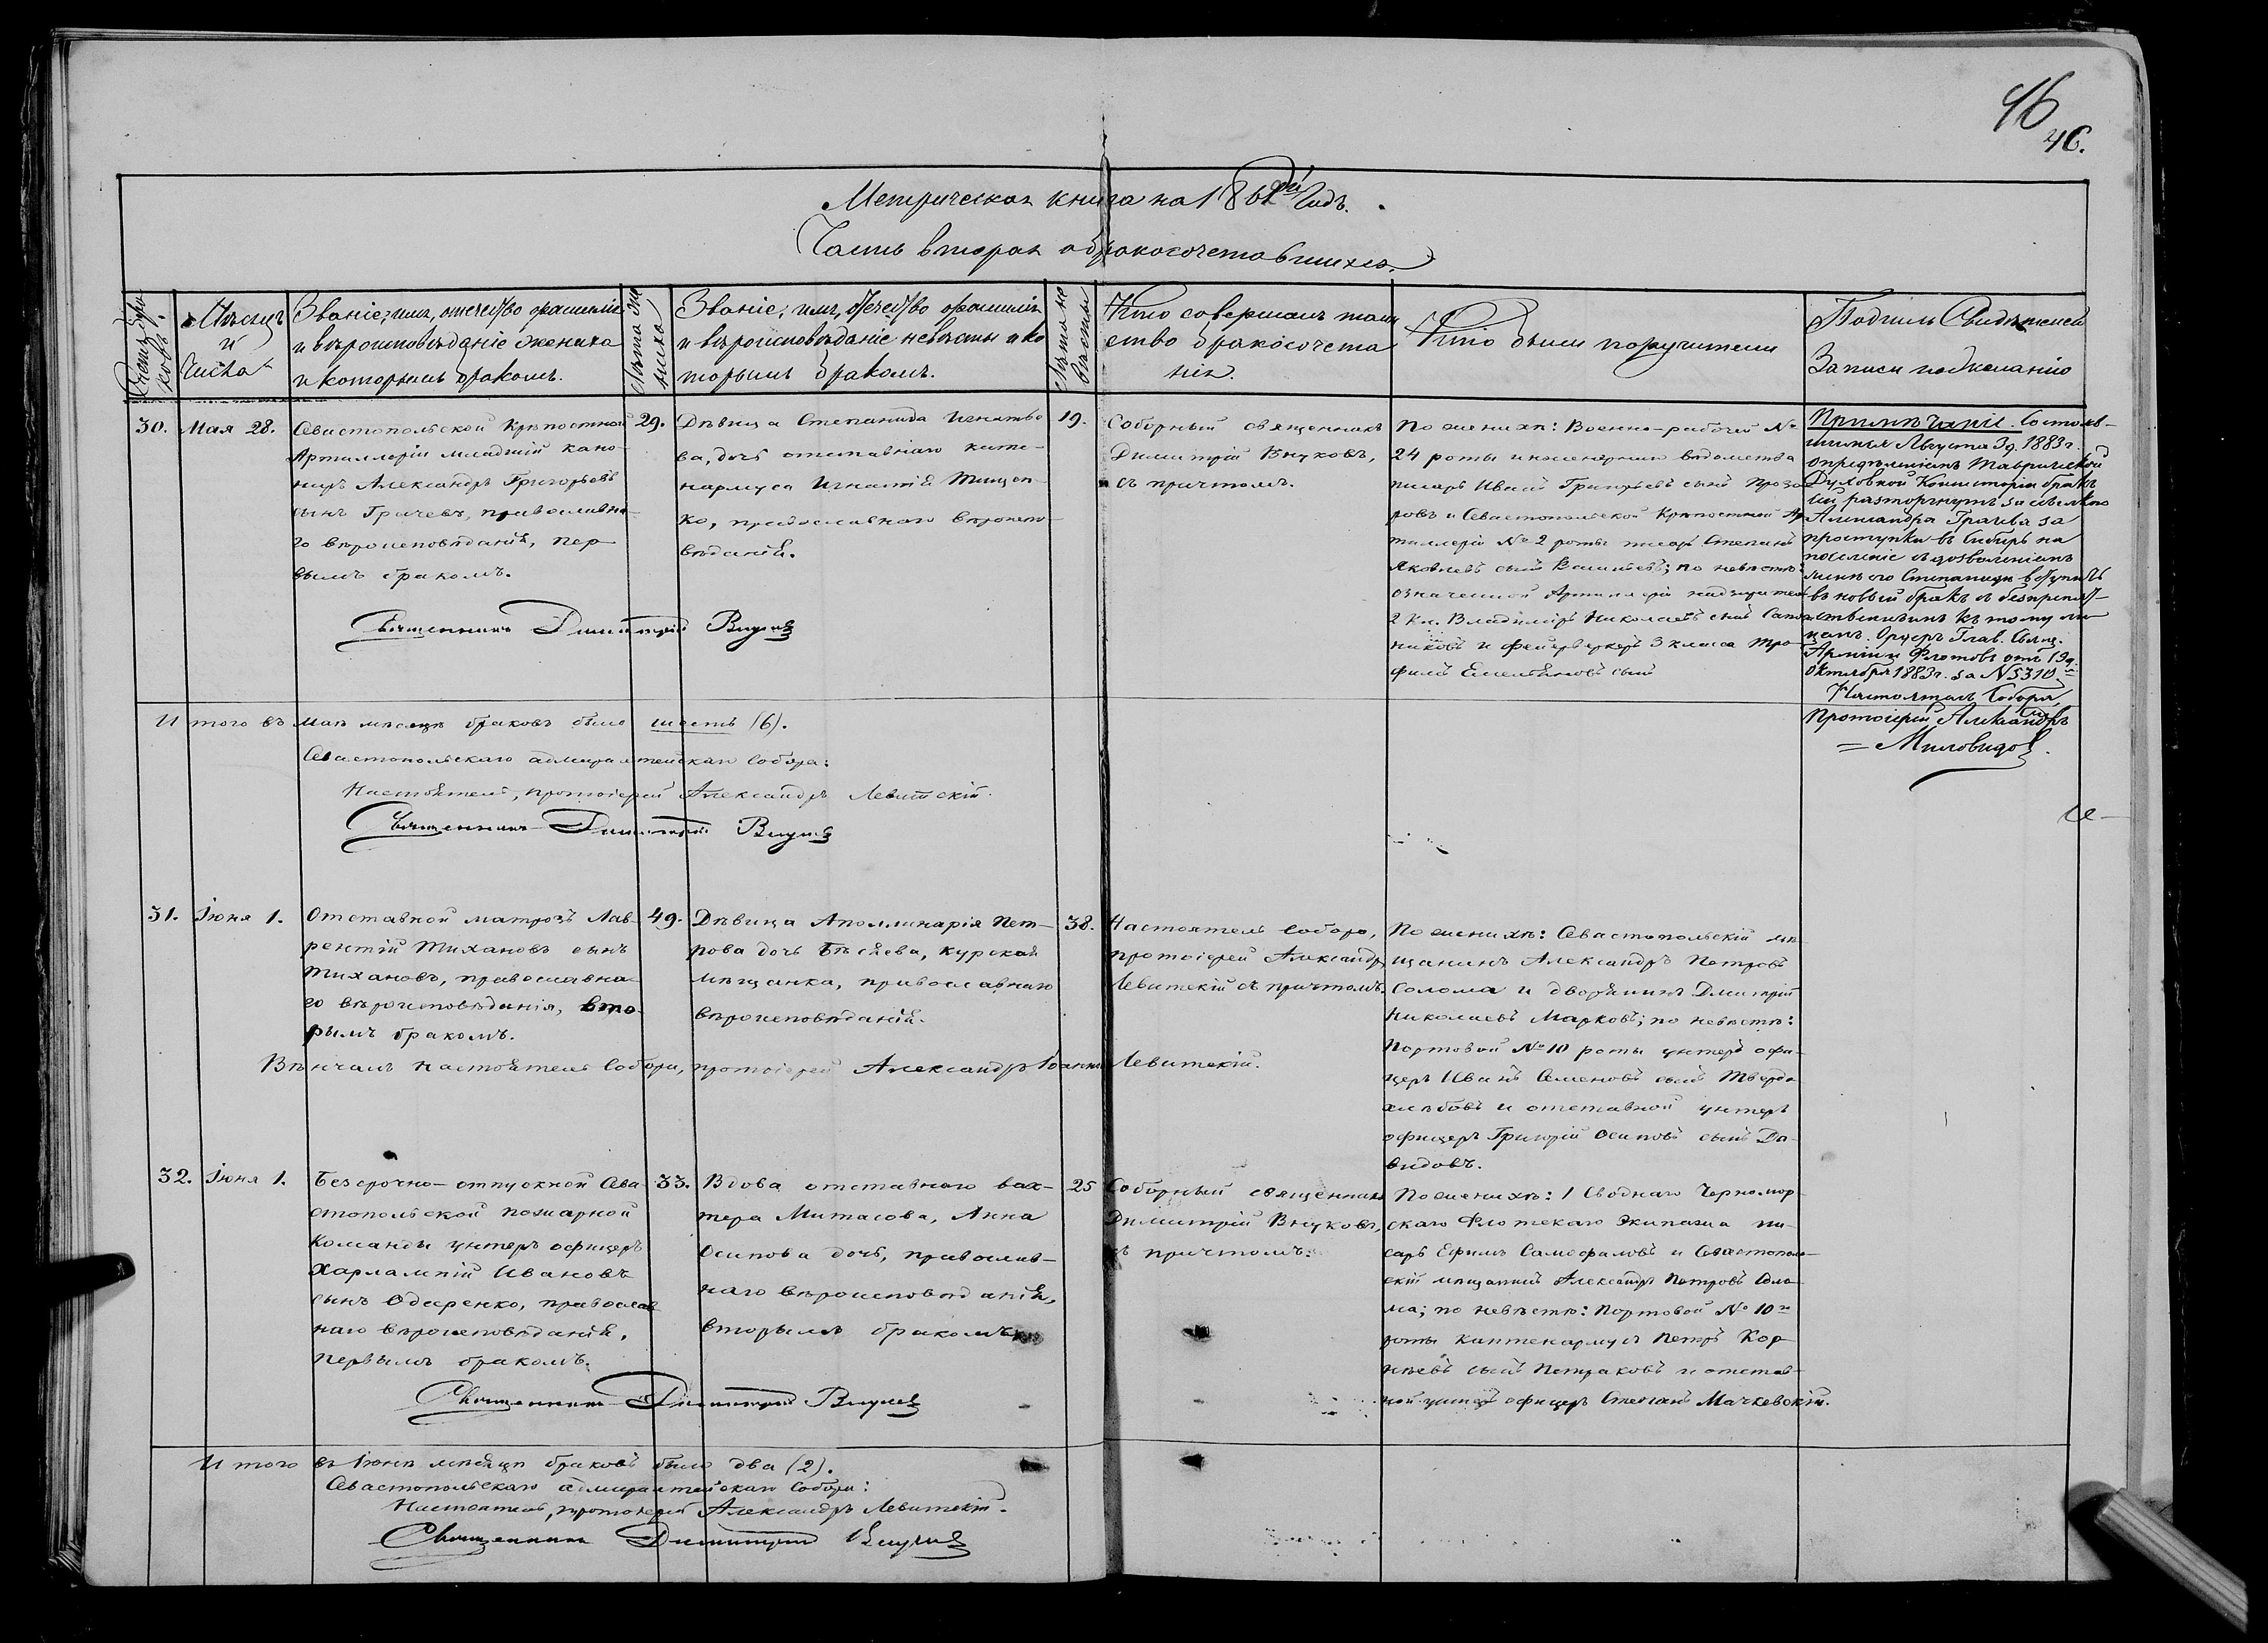 46
46.
Метрическая книга на 186 Годъ.
Часть вторая о бракосочетавшихся.
Счетъ бра
ковъ.
Мѣсяцъ
и
Числа
Званіе, имя, отечество фамилію
и вѣроисповѣданіе жениха
и которымъ бракомъ.
Лѣта же
ниха
Званіе, имя, отечество фамилія
и вѣроисповѣданіе невѣсты и ко
торымъ бракомъ.
Лѣта не
вѣсты
Кто совершалъ таин
ство бракосочета
нія.
Кто были поручители
Подпись Свидѣтелей
Записи по желанію
30. Мая 28.
Севастопольской Крѣпостной
Артиллеріи младшій кано-
ниръ Александръ Григорьевъ
сынъ Грачевъ, православна-
го вѣроисповѣданія, пер
вымъ бракомъ.
29.
Дѣвица Степанида Игнатье
ва, дочь отставнаго капте-
нармуса Игнатія Тищен-
ко, православнаго вѣроиспо-
вѣданія.
19.
Соборный священникъ
Димитрій Внуковъ,
съ причтомъ.
По женихѣ: Военно-рабочей №
24 роты инженернаго вѣдомства
писарь Иванъ Григорьевъ сынъ
ровъ и Севастопольской Крѣпостной Ар
тиллеріи № 2 роты писарь Степанъ
Яковлевъ сынъ Васильевъ; по невѣстѣ:
означенной Артиллеріи надзиратель
2 Кл. Владиміръ Николаевъ сынъ Сапож
никовъ и фейерверкеръ 3 класса Тро-
фимъ Емельяновъ сынъ
Примѣчаніе. Состояв-
шимся Августа 3д. 1883 г.
опредѣленіемъ Таврической
Духовной Консисторіи бракъ
сей расторгнутъ за ссылкою
Александра Грачева за
проступки въ Сибирь на
поселеніе съ дозволеніемъ
женѣ его Степанидѣ вступить
въ новый бракъ съ безпрепят-
ственнымъ къ тому ли
цемъ. Ордеръ Глав. Свящ.
Арміи и Флотовъ отъ 19д.
Октября 1883 г. за № 5310
Настоятель Собора,
Протоіерей Александръ
Миловидовъ.
Священникъ Димитрій Внуковъ
И того въ маѣ мѣсяцѣ браковъ было шесть (6).
Севастопольскаго адмиралтейскаго Собора:
Настоятель, протоіерей Александръ Левитскій.
Священникъ Димитрій Внуковъ
31. Іюня 1.
Отставной матрозъ Лав-
рентій Тихановъ сынъ
Тихановъ, православна-
го вѣроисповѣданія, вто-
рымъ бракомъ.
49.
Дѣвица Аполлинарія Пет-
рова дочь Бѣсяева, курская
мѣщанка, православнаго
вѣроисповѣданія.
38.
Настоятель собора,
протоіерей Александръ
Левитскій съ причтомъ.
По женихѣ: Севастопольскій мѣ
щанинъ Александръ Петровъ
Солома и дворянинъ Дмитрій
Николаевъ Марковъ; по невѣстѣ:
Портовой № 10 роты унтеръ офи-
церъ Иванъ Семеновъ сынъ Твердо
хлѣбовъ и отставной унтеръ
офицеръ Григорій Осиповъ сынъ Да-
видовъ.
Вѣнчалъ настоятель Собора, протоіерей Александръ Левитскій.
32. Іюня 1.
Безсрочно-отпускной Сева-
стопольской пожарной
Команды унтеръ офицеръ
Харлампій Ивановъ
сынъ Одаренко, православ
наго вѣроисповѣданія,
первымъ бракомъ.
33.
Вдова отставнаго вах-
тера Митасова, Анна
Осипова дочь, православ-
наго вѣроисповѣданія,
вторымъ бракомъ.
25
Соборный священникъ
Димитрій Внуковъ,
съ причтомъ.
По женихѣ: 1 Своднаго Черномор-
скаго Флотскаго Экипажа пи-
сарь Ефимъ Самофаловъ и Севастополь-
скій мѣщанинъ Александръ Петровъ Соло-
ма; по невѣстѣ: Портовой № 10й
роты каптенармусъ Петръ Кор-
нѣевъ сынъ Петраковъ и отстав-
ной унтеръ офицеръ Степанъ Мачкевскій.
Священникъ Димитрій Внуковъ
И того въ Іюнѣ мѣсяцѣ браковъ было два (2).
Севастопольскаго адмиралтейскаго Собора:
Настоятель, протоіерей Александръ Левитскій.
Священникъ Димитрій Внуковъ